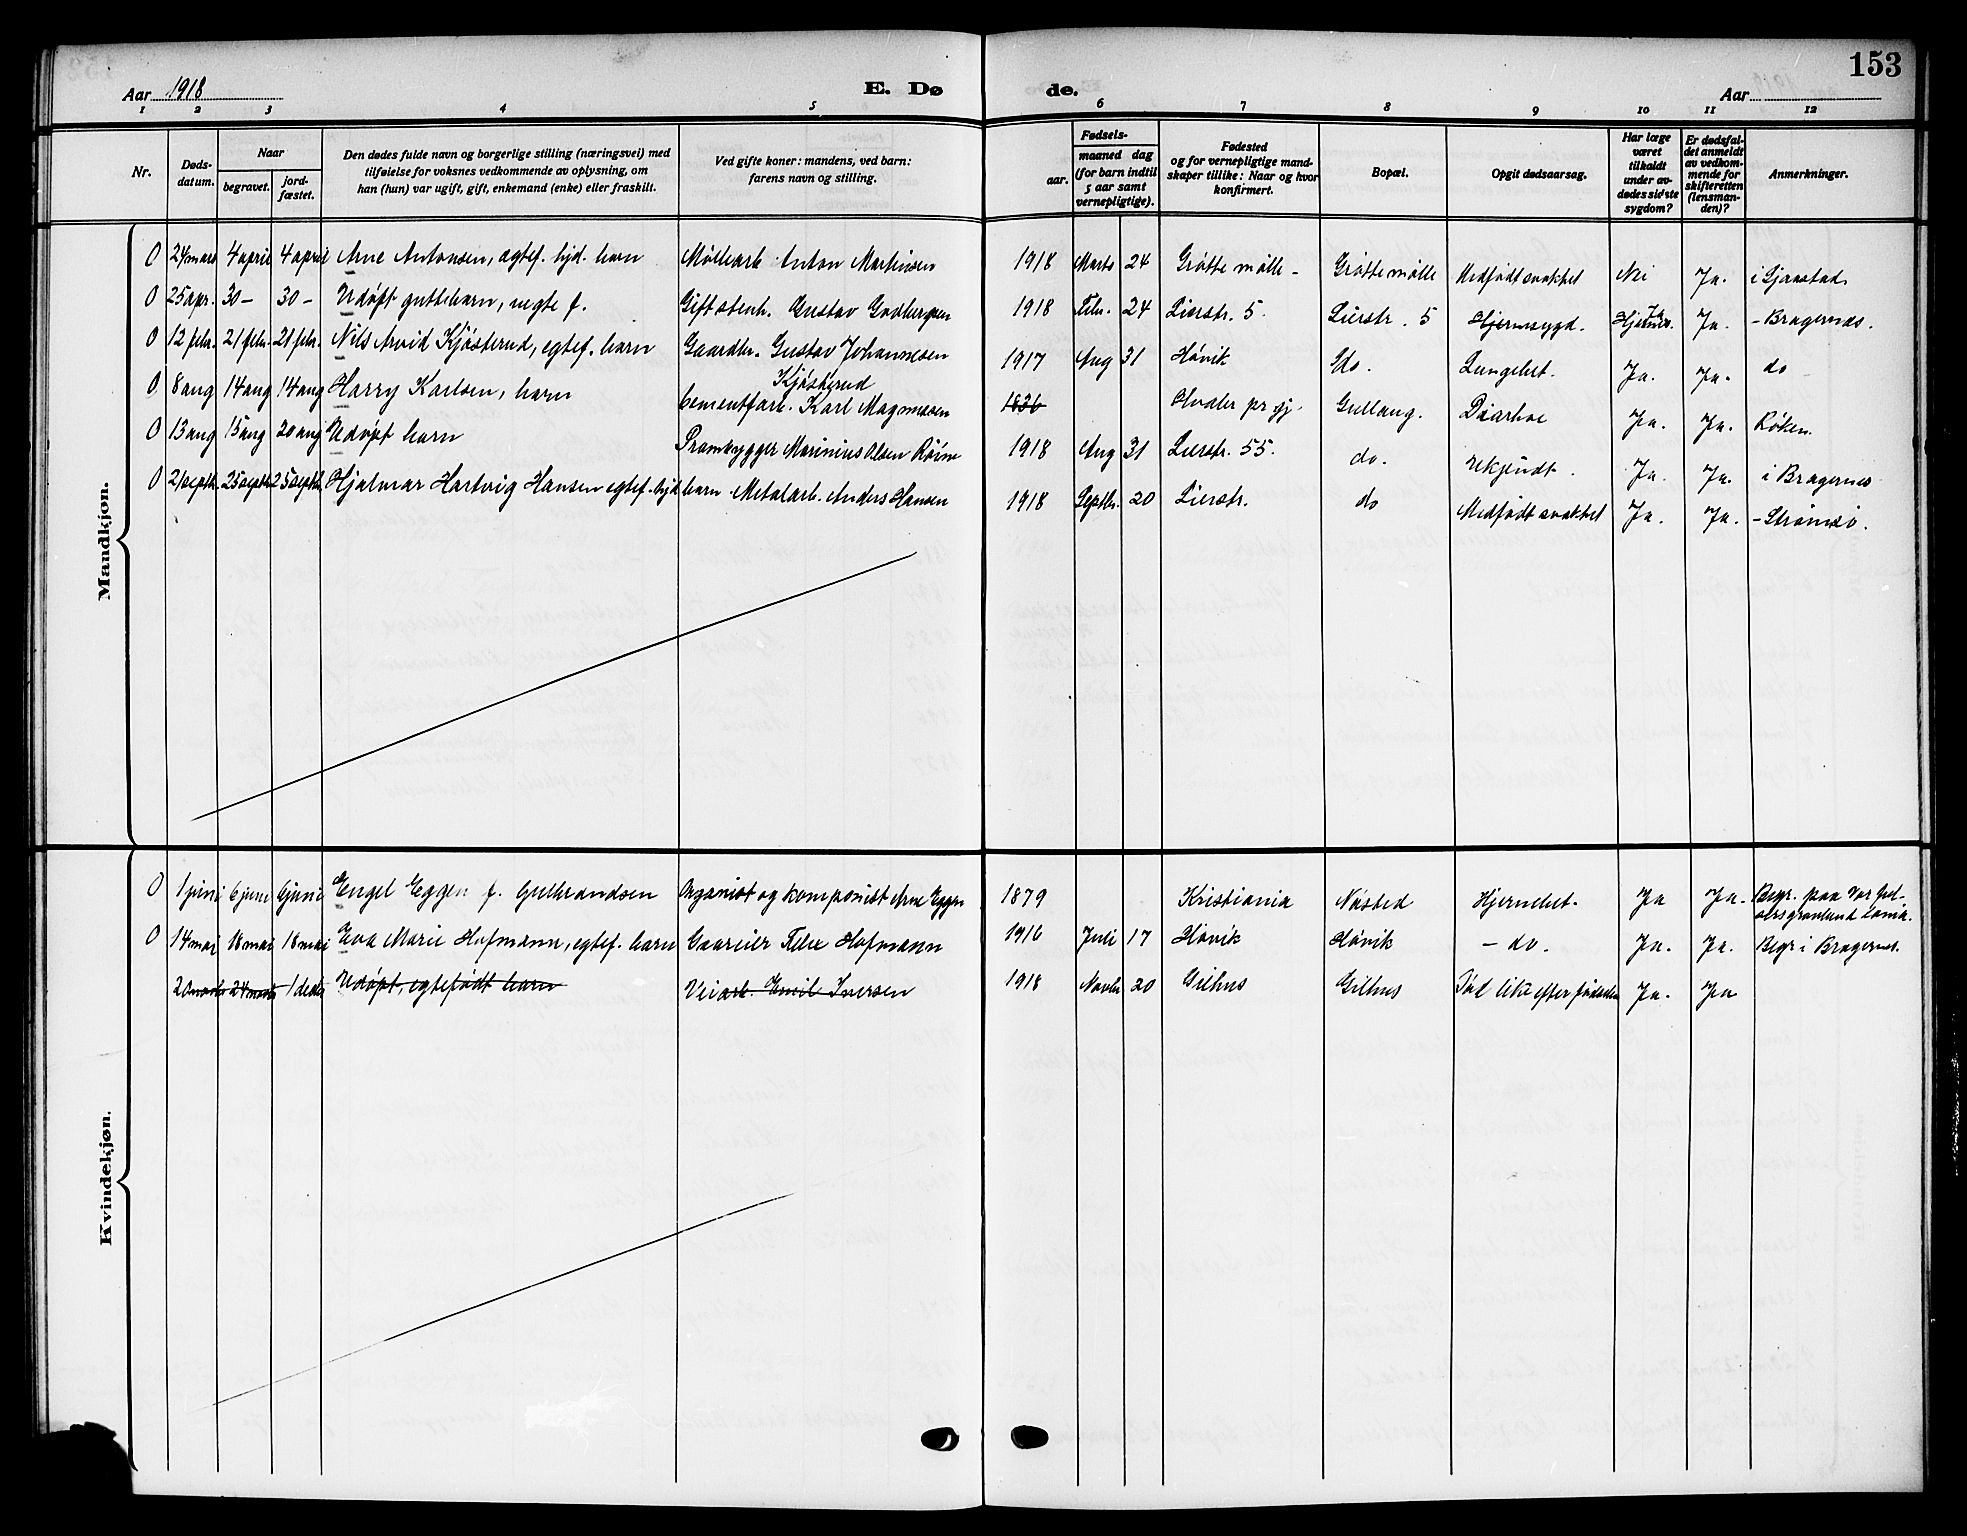 153
Aar 1918
E. Dø
de.
Aar
1 2 3 4 5 6 7 8 9 10 11 12
Nr.
Døds-
datum.
Naar
begravet.
jord-
fæstet.
Den dødes fulde navn og borgerlige stilling (næringsvei) med
tilføielse for voksnes vedkommende av oplysning, om
han (hun) var ugift, gift, enkemand (enke) eller fraskilt.
Ved gifte koner: mandens, ved barn:
farens navn og stilling.
Fødsels-
aar.
maaned dag
(for barn indtil
5 aar samt
vernepligtige).
Fødested
og for vernepligtige mand-
skaper tillike: Naar og hvor
konfirmert.
Bopæl.
Opgit dødsaarsag.
Har læge
været
tilkaldt
under av-
dødes sidste
sygdom?
Er dødsfal-
det anmeldt
av vedkom-
mende for
skifteretten
(lensman-
den)?
Anmerkninger.
Mandkjøn.
0 24 mars 4 april 4 april Arne Antonsen, egtef. hjd. barn Møllearb. Anton Martinsen 1918 Marts 24 Grøtte mølle - Grøtte mølle Medfødt svakhet Nei Ja. i Gjaastad
0 25 apr. 30 - 30 - Udøpt guttebarn, uegte f. Gift stenh. Gustav 1918 Febr. 24 Lierstr. 5. Lierstr. 5 Hjernesygd. Ja Ja. - Bragernes.
0 12 febr. 21 febr. 21 febr. Nils Arvid Kjøsterud, egtef. barn Gaardbr. Gustav Johannesen
Kjøsterud 1917 Aug 31 Høvik do. Lungebet. Ja. Ja. do
0 8 aug 14 aug 14 aug Harry Karlsen, barn Cementfarb. Karl Magnussen 1836 Hvaler pr gj. Gullaug. Diarhoe Ja. Ja. Røken.
0 13 aug 15 aug 20 aug Udøpt barn Prambygger Marinius Olsen 1918 Aug 31 Lierstr. 55. do. Ukjendt. Ja. Ja. i Bragernes
0 21 septb. 25 septb. 25 septb. Hjalmar Hartvig Hansen egtef. hjd barn Metalarb. Anders Hansen 1918 Septbr. 20 Lierstr. do Medfødt svakhet Ja. Ja. - Strømsø.
Kvindekjøn.
0 1 juni 6 juni 6 juni Engel Eggen f. Gulbrandsen Organist og komponist Arne Eggen 1879 Kristiania Nøsted Hjernebet. Ja Ja. Begr. paa Vor
0 14 mai 18 mai 18 mai Eva Marie Hofmann, egtef. barn Felix Hofmann 1916 Juli 17 Høvik Høvik - do. Ja. Ja. Begr i Bragernes.
20 1 decbr Udøpt, egtefødt barn Veiarb. Emil Iversen 1918 Novbr 20 Gilhus Gilhus Død like efter fødselen Ja. Ja